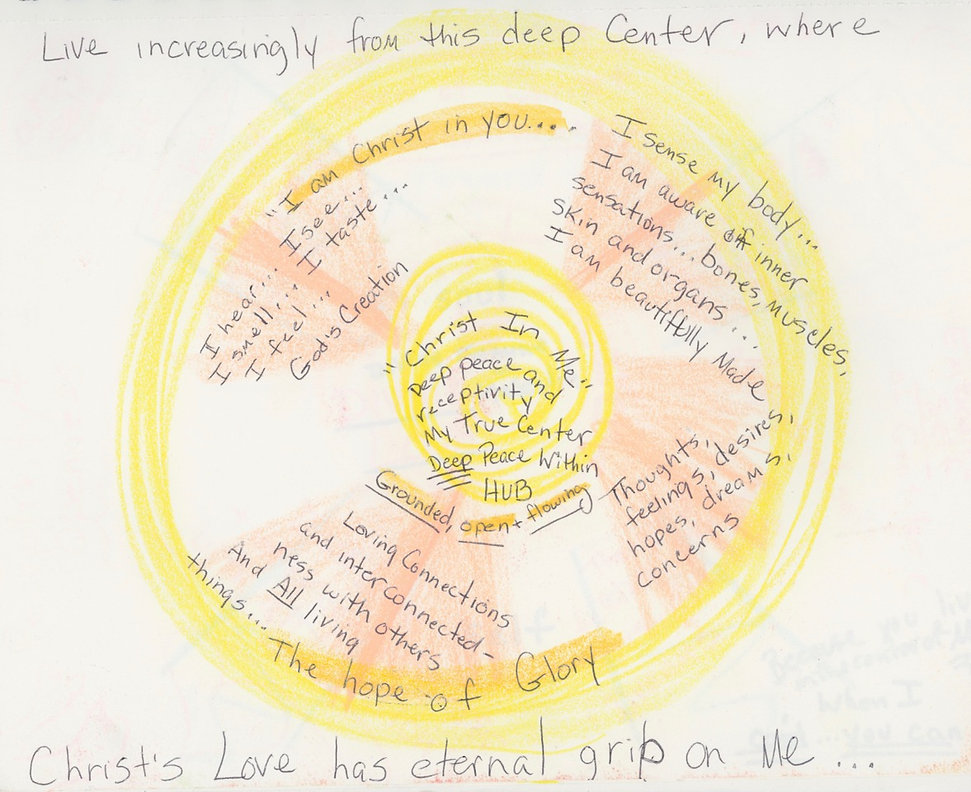 Live increasingly from this deep Center, where
"I am Christ in you...
I see...
I taste...
I hear...
I smell...
I feel...
God's Creation
I sense my body...
I am aware of inner
sensations... bones, muscles,
skin and organs...
I am beautifully Made
"Christ In Me"
Deep peace and
receptivity
My True Center
Deep Peace Within
HUB
Grounded, open + flowing
Thoughts,
feelings, desires,
hopes, dreams,
concerns
Loving Connections
and interconnected-
ness with others
And All living
things...
The hope of Glory
Christ's Love has eternal grip on Me...
When I
you can